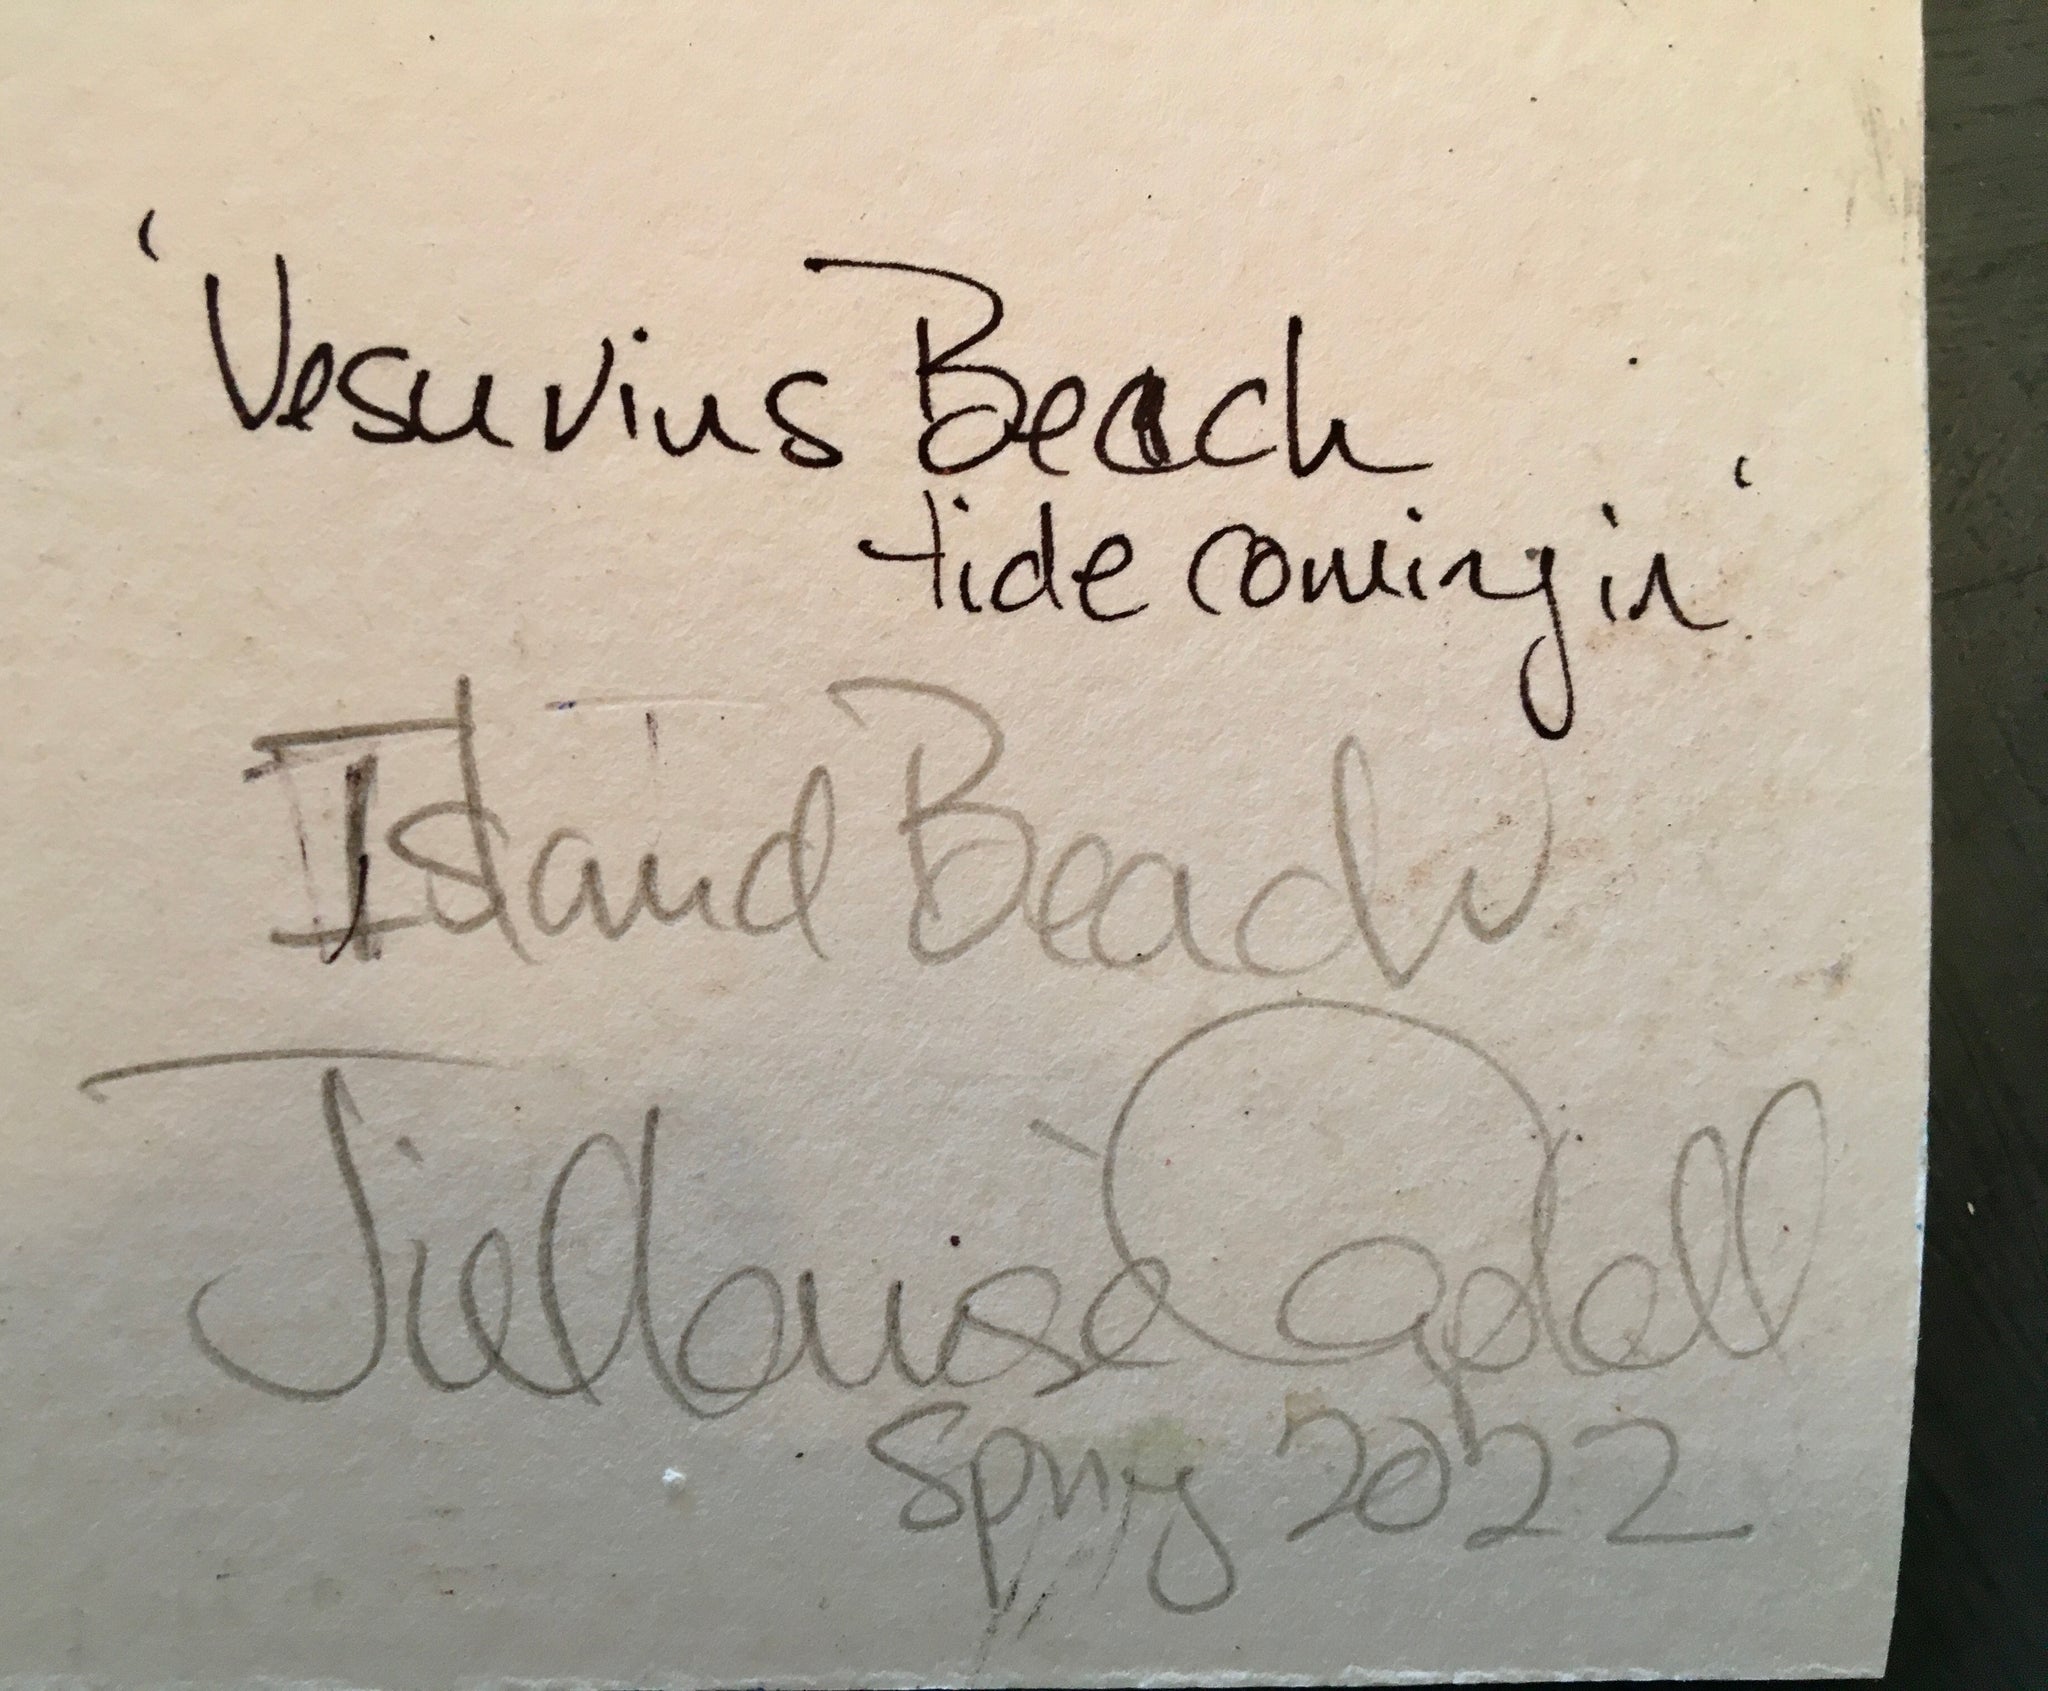 'Vesuvius Beach
tide coming in'
Island Beach
Jill Louise
Spring 2022